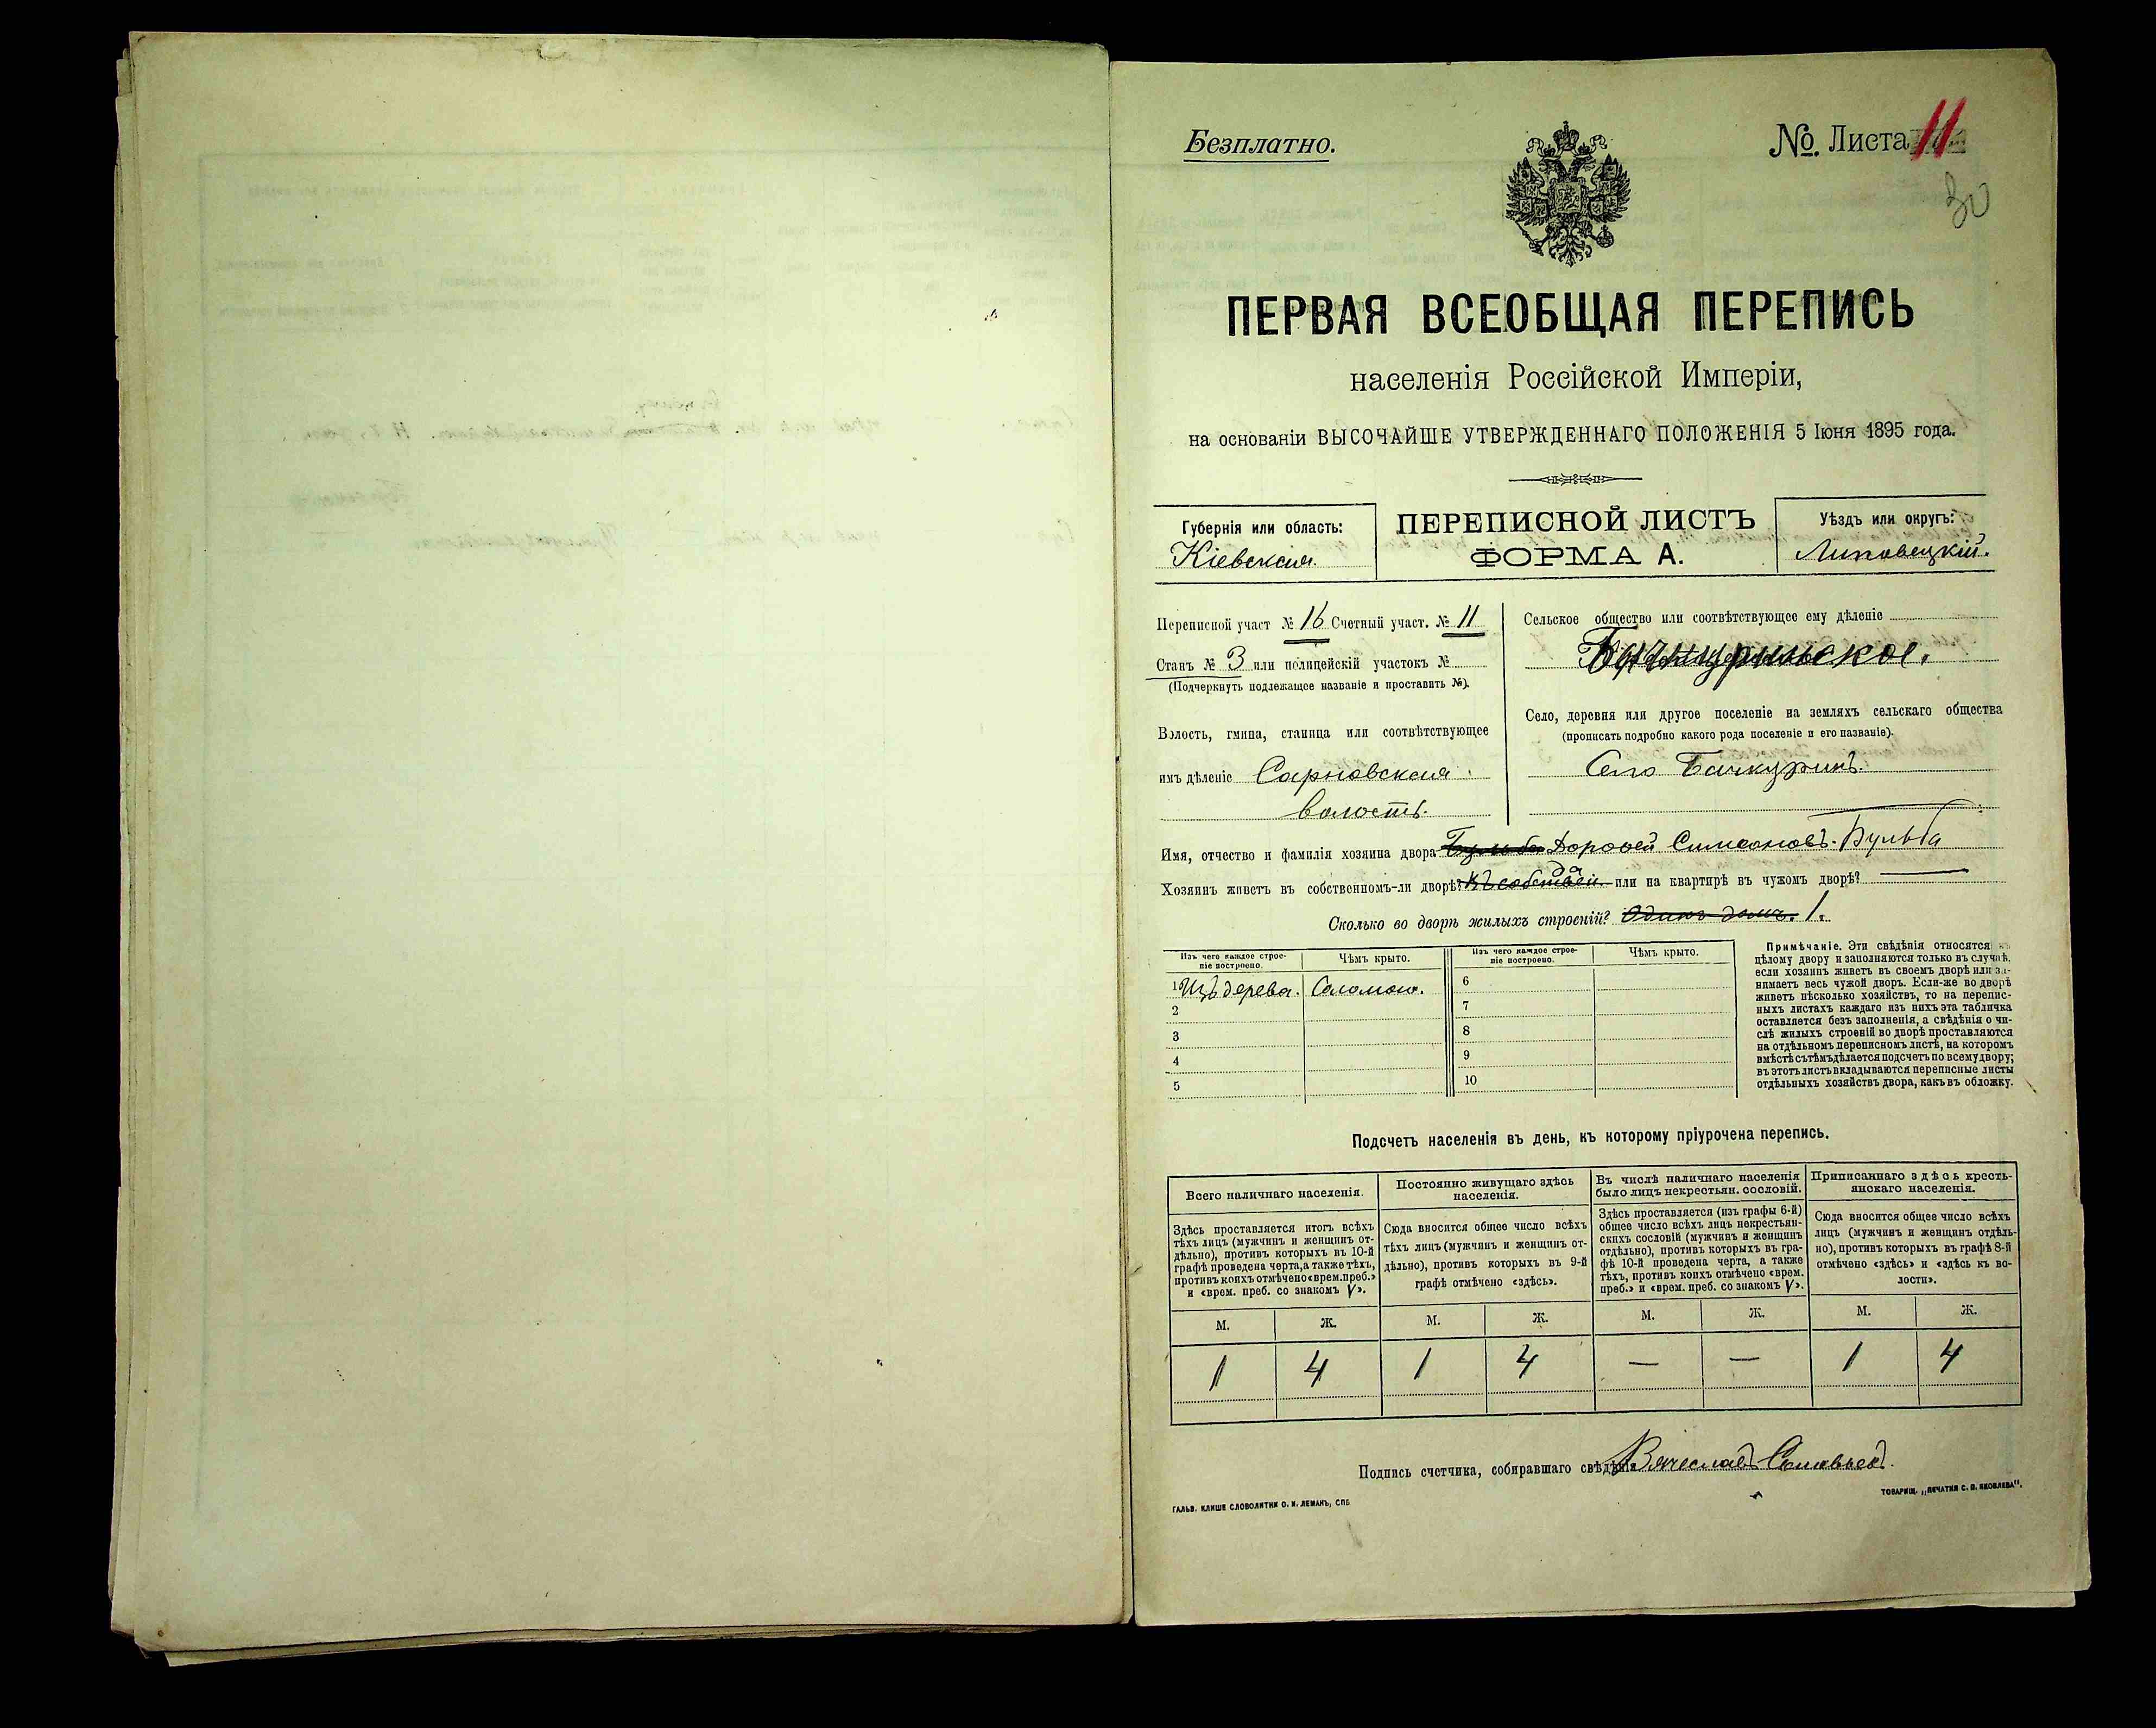 Безплатно.
№ Листа 11
30
ПЕРВАЯ ВСЕОБЩАЯ ПЕРЕПИСЬ
населенія Россійской Имперіи,
на основаніи ВЫСОЧАЙШЕ УТВЕРЖДЕННАГО ПОЛОЖЕНІЯ 5 Іюня 1895 года.
Губернія или область:
Кіевская.
ПЕРЕПИСНОЙ ЛИСТЪ
ФОРМА А.
Уѣздъ или округъ:
Липовецкій.
Переписной участ № 16 Счетный участ. № 11
Станъ № 3 или полицейскій участокъ №
(Подчеркнуть подлежащее названіе и проставить №).
Волость, гмина, станица или соотвѣтствующее
имъ дѣленіе Сарновская
волость.
Сельское общество или соотвѣтствующее ему дѣленіе
Бачкуринское.
Село, деревня или другое поселеніе на земляхъ сельскаго общества
(прописать подробно какого рода поселеніе и его названіе).
Село Бачкуринъ.
Имя, отчество и фамилія хозяина двора Бульба Дорофей Симеоновъ. Бульба
Хозяинъ живетъ въ собственномъ-ли дворѣ? да или на квартирѣ въ чужомъ дворѣ? —
Сколько во дворѣ жилыхъ строеній? Одинъ домъ. 1.
Изъ чего каждое строе-
ніе построено.
Чѣмъ крыто.
Изъ чего каждое строе-
ніе построено.
Чѣмъ крыто.
1 Изъ дерева. Соломою. 6
2 7
3 8
4 9
5 10
Примѣчаніе. Эти свѣдѣнія относятся къ
цѣлому двору и заполняются только въ случаѣ,
если хозяинъ живетъ въ своемъ дворѣ или за-
нимаетъ весь чужой дворъ. Если-же во дворѣ
живетъ нѣсколько хозяйствъ, то на перепис-
ныхъ листахъ каждаго изъ нихъ эта табличка
оставляется безъ заполненія, а свѣдѣнія о чи-
слѣ жилыхъ строеній во дворѣ проставляются
на отдѣльномъ переписномъ листѣ, на которомъ
вмѣстѣ съ тѣмъ дѣлается подсчетъ по всему двору;
въ этотъ листъ вкладываются переписные листы
отдѣльныхъ хозяйствъ двора, какъ въ обложку.
Подсчетъ населенія въ день, къ которому пріурочена перепись.
Всего наличнаго населенія.
Постоянно живущаго здѣсь
населенія.
Въ числѣ наличнаго населенія
было лицъ некрестьян. сословій.
Приписаннаго здѣсь кресть-
янскаго населенія.
Здѣсь проставляется итогъ всѣхъ
тѣхъ лицъ (мужчинъ и женщинъ от-
дѣльно), противъ которыхъ въ 10-й
графѣ проведена черта, а также тѣхъ,
противъ коихъ отмѣчено «врем. преб.»
и «врем. преб. со знакомъ V».
Сюда вносится общее число всѣхъ
тѣхъ лицъ (мужчинъ и женщинъ от-
дѣльно), противъ которыхъ въ 9-й
графѣ отмѣчено «здѣсь».
Здѣсь проставляется (изъ графы 6-й)
общее число всѣхъ лицъ некрестьян-
скихъ сословій (мужчинъ и женщинъ
отдѣльно), противъ которыхъ въ гра-
фѣ 10-й проведена черта, а также
тѣхъ, противъ коихъ отмѣчено «врем.
преб.» и «врем. преб. со знакомъ V».
Сюда вносится общее число всѣхъ
лицъ (мужчинъ и женщинъ отдѣль-
но), противъ которыхъ въ графѣ 8-й
отмѣчено «здѣсь» и «здѣсь къ во-
лости».
М. Ж. М. Ж. М. Ж. М. Ж.
1 4 1 4 — — 1 4
Подпись счетчика, собиравшаго свѣдѣнія Вячеславъ Соловьевъ.
ГАЛЬВ. КЛИШЕ СЛОВОЛИТНИ О. И. ЛЕМАНЪ, СПБ
ТОВАРИЩ. „ПЕЧАТНЯ С. П. ЯКОВЛЕВА".